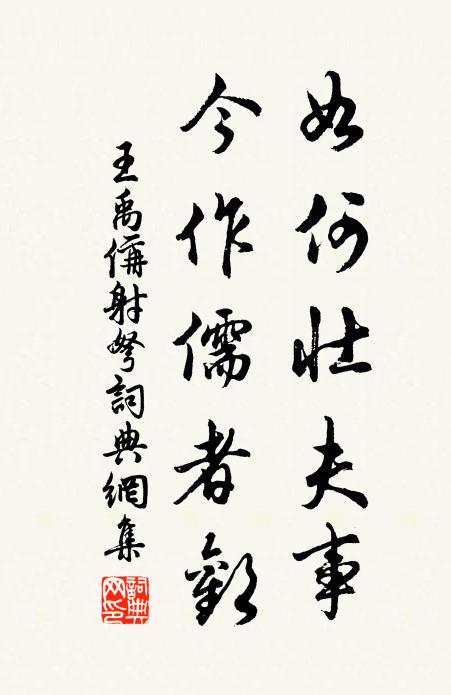 如何壯夫事
今作儒者歡
王禹偁射弩詞典網集
詞典
网印